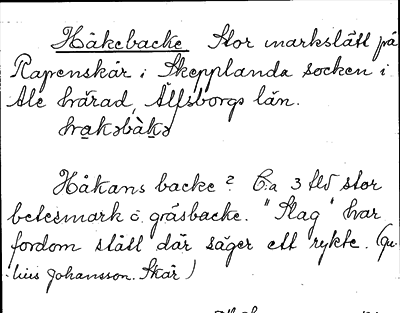 Håkebacke Stor markslätt på
Rapenskår i Skepplanda socken i
Ale härad, Älfsborgs län.
hɑkəbàkə
Håkans backe? C:a 3 tld stor
betesmark o. gräsbacke. "Slag" har
fordom stått där säger ett rykte. (Ju-
lius Johansson. Skår)